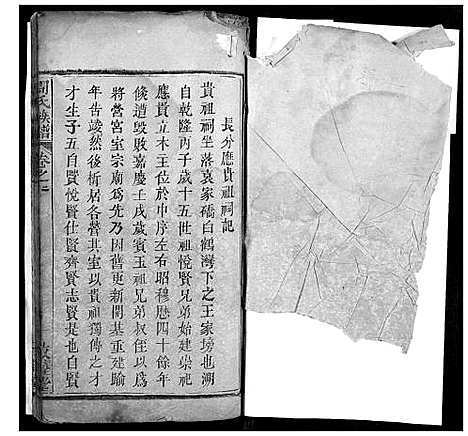 長分應貴祖祠記
貴祖祠坐落袁家橋白鶴灣下之王家塝也溯
自乾隆丙子歲十五世祖悅賢兄弟始建崇祀
應貴立木主位於中序左右昭穆歷四十餘年
倏遭毀敗嘉慶壬戌歲賓玉祖兄弟叔侄以為
將營宮室宗廟為先乃因舊更新開基重建踰
年告竣然後析居各營其室以貴祖獨傳之才
才生子五自賢悅賢仕賢齊賢志賢是也自賢
周氏族譜
卷之二